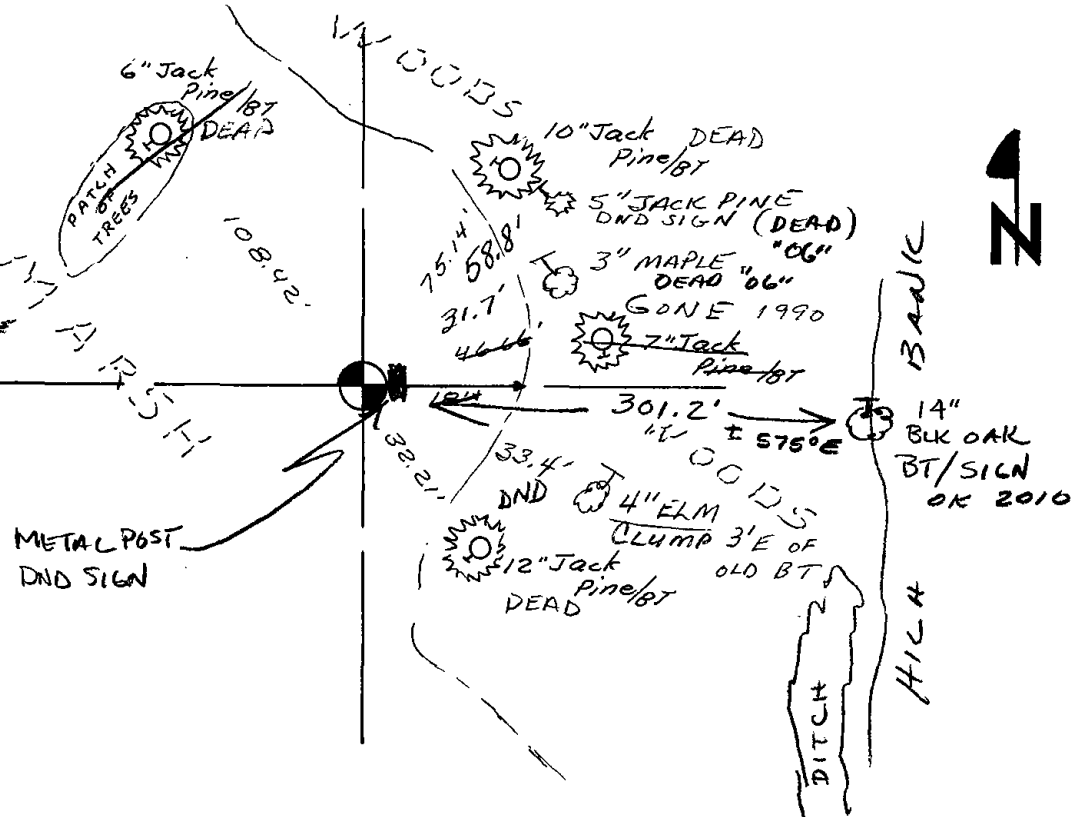 WOODS
6" Jack
Pine/BT
DEAD
PATCH
OF
TREES
10" Jack DEAD
Pine/BT
5" JACK PINE
DND SIGN (DEAD)
"06"
3" MAPLE
DEAD "06"
GONE 1990
7" Jack
Pine/BT
N
108.42'
75.14'
58.8'
31.7'
46.66'
MARSH
HIGH BANK
301.2'
± S75°E
14"
BLK OAK
BT/SIGN
OK 2010
WOODS
32.21'
33.4'
DND
4" ELM
CLUMP 3'E OF
OLD BT
12" Jack
Pine/BT
DEAD
METAL POST
DND SIGN
DITCH